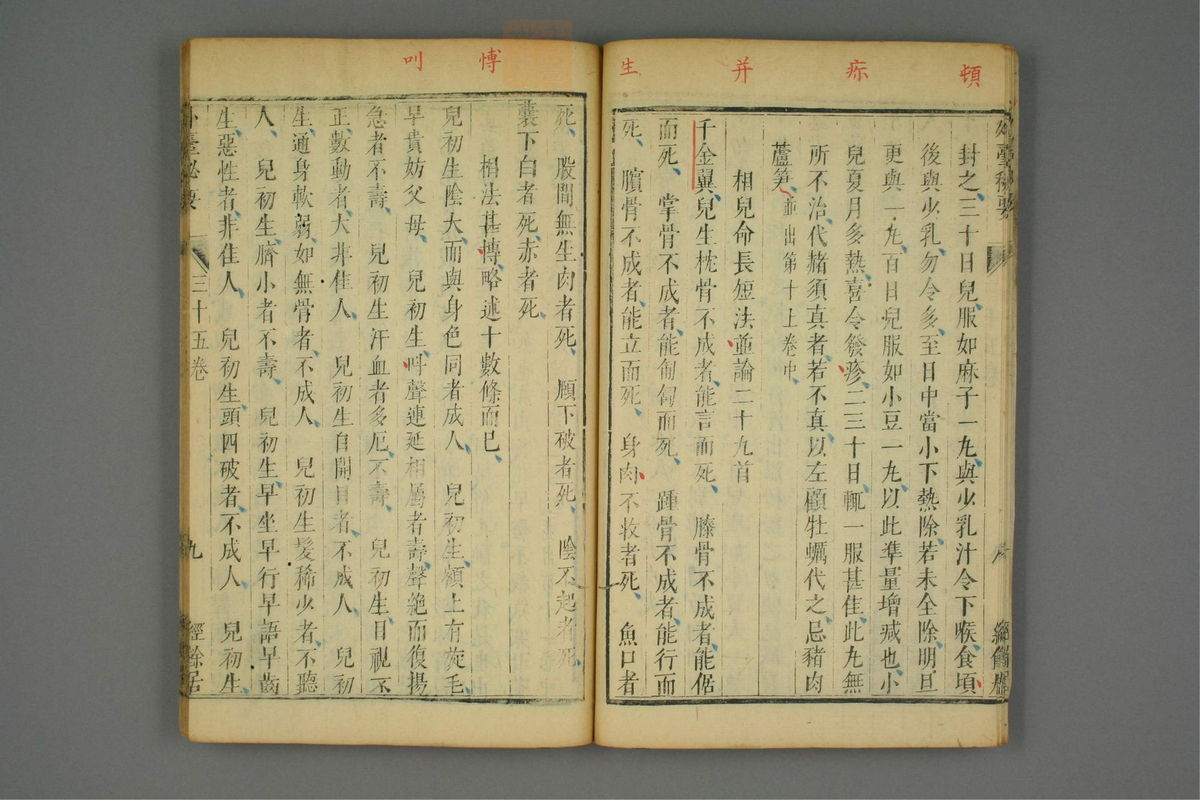 頓
疹
并
生
外臺秘要
封之三十日兒服如麻子一丸與少乳汁令下喉食頃
後與少乳勿令多至日中當小下熱除若未全除明旦
更與一丸百日兒服如小豆一丸以此準量增減也小
兒夏月多熱喜令發疹二三十日輒一服甚佳此丸無
所不治代赭須真者若不真以左顧牡蠣代之忌豬肉
蘆笋並出第十上卷中
相兒命長短法並論二十九首
千金翼兒生枕骨不成者能言而死膝骨不成者能倨
而死掌骨不成者能匍匐而死踵骨不成者能行而
死臏骨不成者能立而死身肉不收者死魚口者
愽
叫
死股間無生肉者死顧下破者死陰不起者死
囊下白者死赤者死
相法甚博略述十數條而已
兒初生陰大而與身色同者成人兒初生額上有旋毛
早貴妨父母兒初生呌聲連延相屬者壽聲絕而復揚
急者不壽兒初生汗血者多厄不壽兒初生目視不
正數動者大非佳人兒初生自開目者不成人兒初
生通身軟弱如無骨者不成人兒初生髮稀少者不聽
人兒初生臍小者不壽兒初生早坐早行早語早齒
生惡性者非佳人兒初生頭四破者不成人兒初生
外臺秘要
三十五卷
九
經餘居